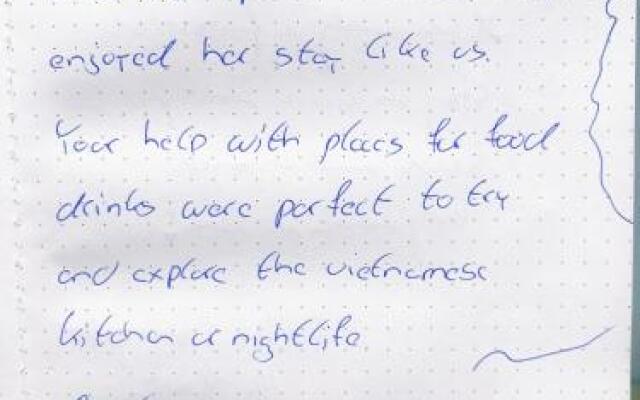 enjoyed her stay like us.
Your help with places for food
drinks were perfect to try
and explore the vietnamese
kitchen or nightlife